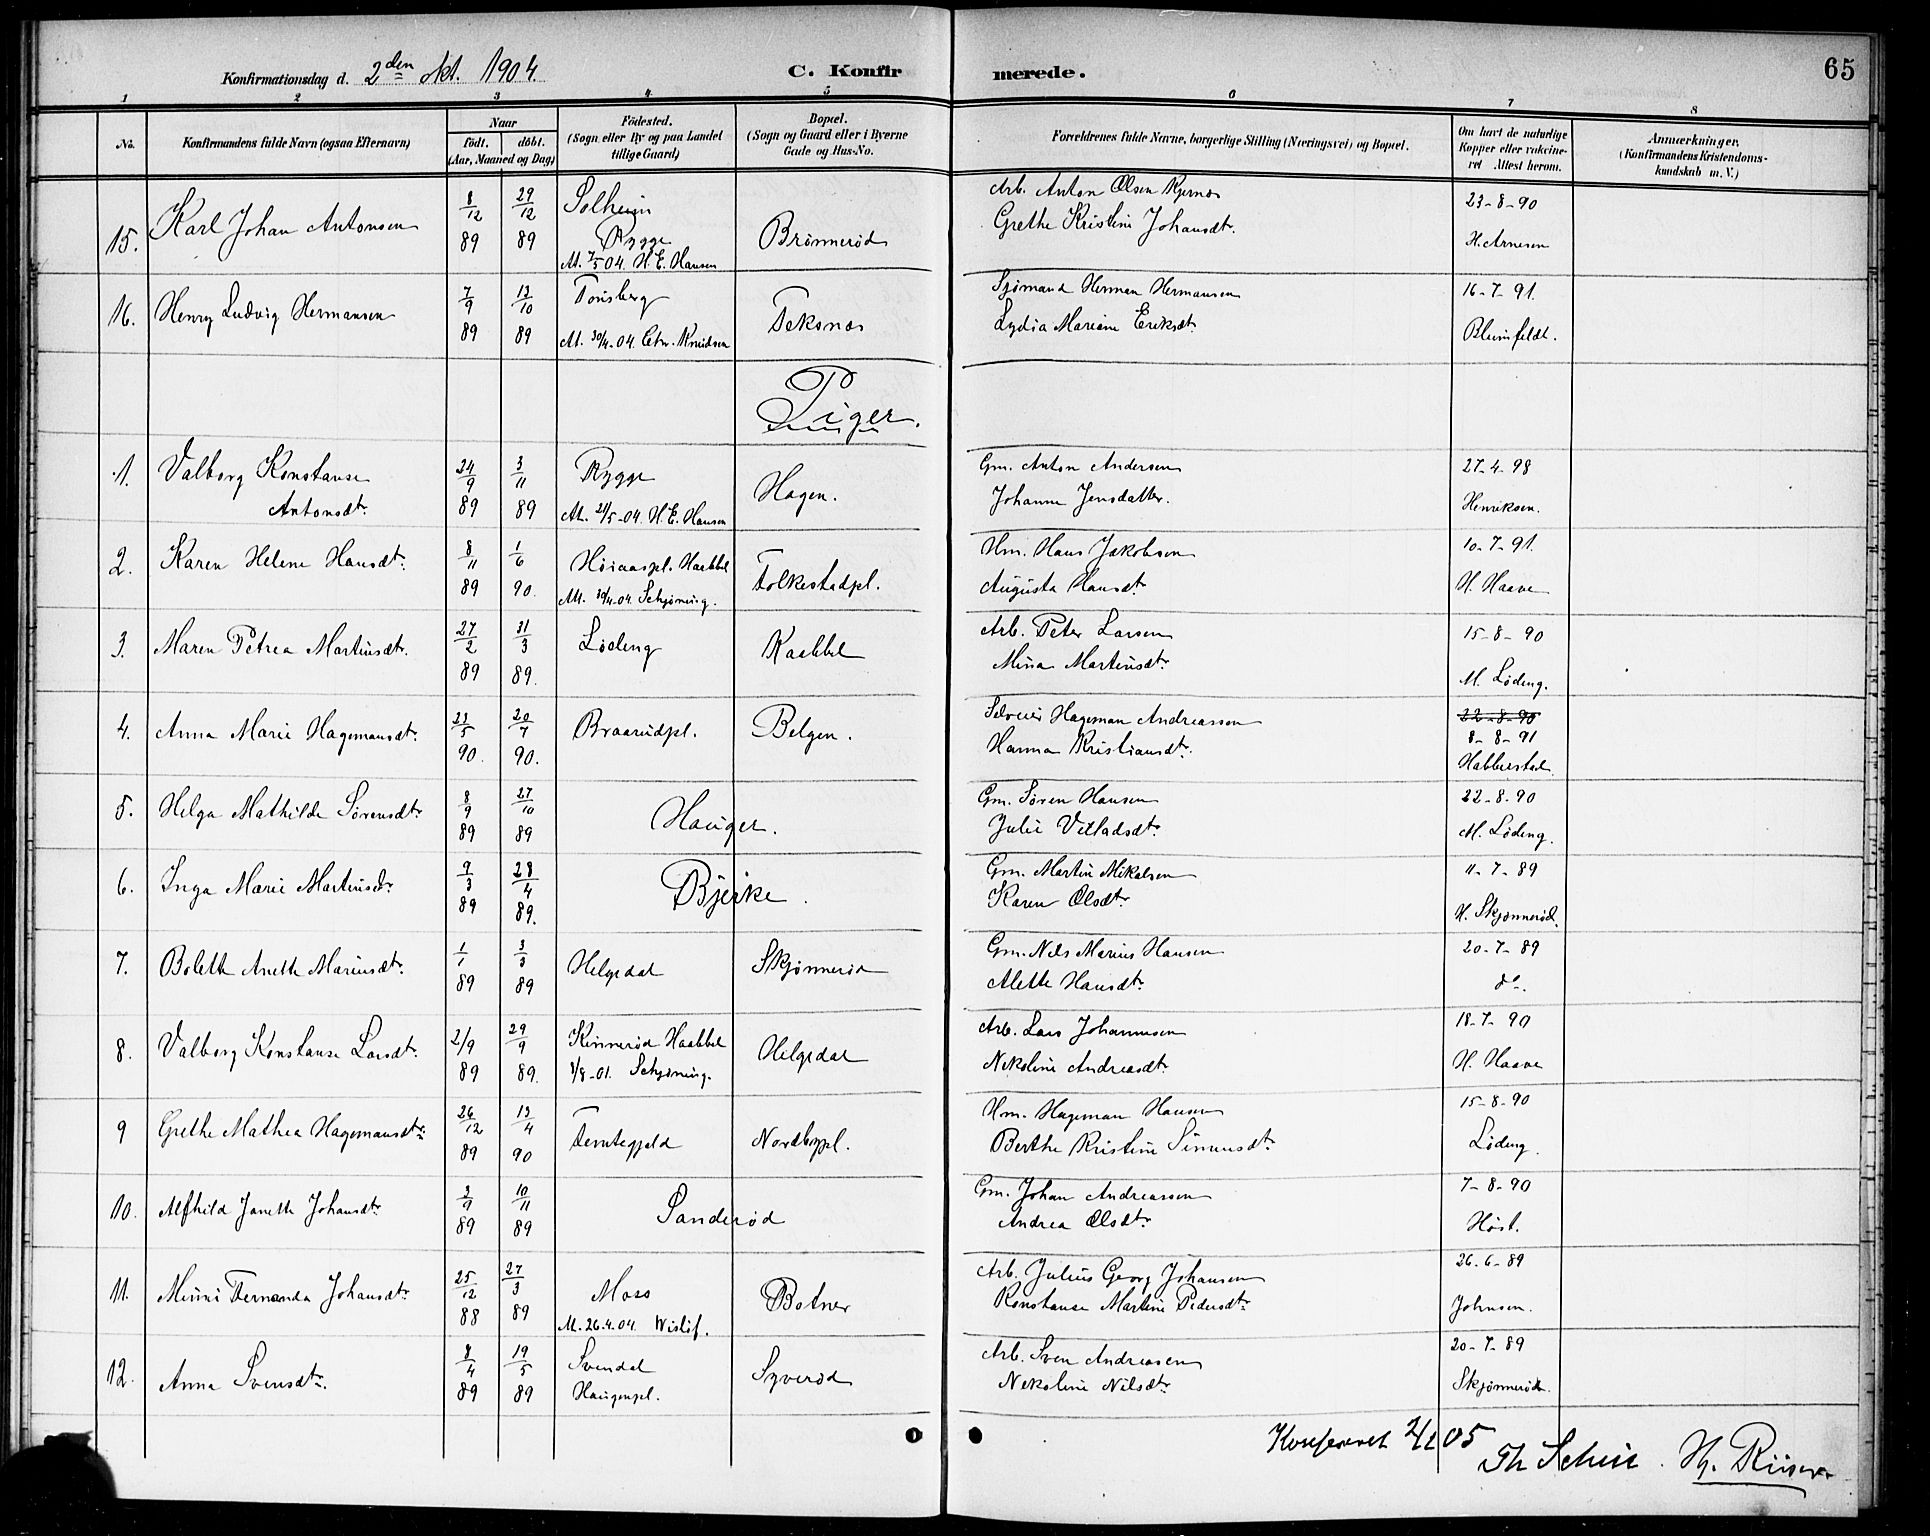 Konfirmationsdag d. 2den Okt. 1904.
C. Konfirmerede.
65
1 2 3 4 5 6 7 8
No.
Konfirmandens fulde Navn (ogsaa Efternavn)
Naar
födt. döbt.
(Aar, Maaned og Dag)
Födested.
(Sogn eller By og paa Landet
tillige Gaard)
Bopæl.
(Sogn og Gaard eller i Byerne
Gade og Hus-No.
Forældrenes fulde Navne, borgerlige Stilling (Næringsvei) og Bopæl.
Om havt de naturlige
Kopper eller vakcine-
ret. Attest herom.
Anmærkninger.
(Konfirmandens Kristendoms-
kundskab m. V.)
15. Karl Johan Antonsen
8/12 89
29/12 89
Solheim
Rygge
At. 7/5 04. H. E. Hansen
Brønnerød
Arb. Anton Olsen Kjernæs
Grethe Kristine Johansdt.
23-8-90
H. Arnesen
16. Henry Ludvig Hermansen
7/9 89
13/10 89
Tønsberg
At. 30/4-04. Chr. Knudsen
Teksnæs
Sjömand Herman Hermansen
Lydia Mariane Eriksdt.
16-7-91.
Blumfeldt.
Piger.
1. Valborg Konstanse
Antonsdt.
24/9 89
3/11 89
Rygge
At. 21/5-04. H. E. Hansen
Hagen.
Gm. Anton Andersen
Johanne Jensdatter.
27-4-98
Henriksen.
2. Karen Helene Hansdt.
8/11 89
1/6 90.
Høiaaspl. Haabbøl
Att. 30/4-04. Schjöning.
Folkestadpl.
Hm. Hans Jakobsen
Augusta Hansdt.
10-7-91.
H. Haave
3. Maren Petrea Martinsdt.
27/2 89
31/3 89.
Løding
Kaabbel
Arb. Peter Larsen
Mina Martinsdt.
15-8-90
M. Löding.
4. Anna Marie Hagemansdt.
23/5 90.
20/7 90.
Braarudpl.
Belgen.
Selveier Hageman Andreassen
Hanna Kristiansdt.
22-8-90
8-8-91
Habberstad.
5. Helga Mathilde Sørensdt.
8/9 89
27/10 89
Hauger.
Gm. Søren Hansen
Julie Vetladsdt.
22-8-90
M. Löding.
6. Inga Marie Martinsdt.
9/3 89
28/4 89.
Bjerke.
Gm. Martin Mikalsen
Karen Olsdt.
11-7-89
H. Skjønnerød.
7. Bolette Anette Mariusdt.
1/1 89
3/3 89
Helgedal
Skjønnerød
Gm. Nils Marius Hansen
Alette Hansdt.
20-7-89
do.
8. Valborg Konstanse Larsdt.
2/9 89
29/9 89.
Kinnerød Haabbøl
1/8-01. Schjöning.
Helgedal
Arb. Lars Johannesen
Nekoline Andreasdt.
18-7-90
H. Haave
9 Grethe Mathea Hagemansdt.
26/12 89
13/4 90
Femtegjeld
Nordbypl.
Hm. Hageman Hansen
Berthe Kristine Simensdt.
15-8-90
Löding.
10. Alfhild Janette Johansdt.
3/9 89
10/11 89
Sanderød
Gm. Johan Andreassen
Andrea Olsdt.
7-8-90
Høst.
11. Minni Fernanda Johansdt.
25/12 88
27/3 89
Moss
At. 26.4.04. Wisløf.
Botner
Arb. Julius Georg Johansen
Konstanse Martine Pedersdt.
26-6-89
Johnsen.
12. Anna Svensdt.
8/4 89
19/5 89
Svendal
Haugenpl.
Syverød
Arb. Sven Andreasen
Nekoline Nilsdt.
20-7-89
Skjønnerød.
Konfereret 2/2 05